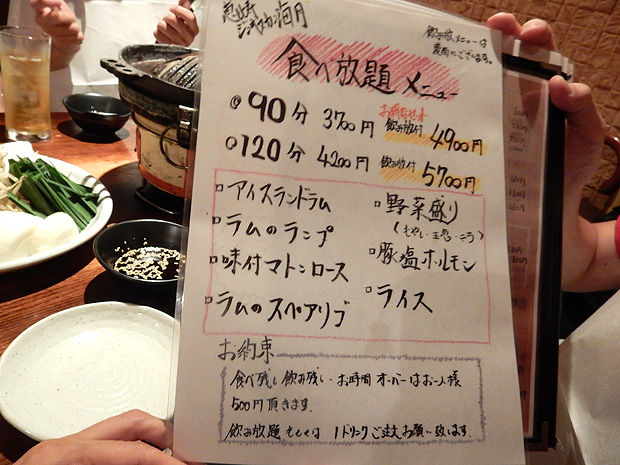 ジンギスカン
飲み放メニューは
裏面にございます。
食べ放題 メニュー
90分 3700円 飲み放付 4900円
120分 4200円 飲み放付 5700円
・アイスランドラム
・ラムのランプ
・味付マトンロース
・ラムのスペアリブ
・野菜盛り
(もやし・玉葱・ニラ)
・豚塩ホルモン
・ライス
お約束
食べ残し 飲み残し・お時間オーバーはお一人様
500円頂きます。
飲み放題もしくは 1ドリンクご注文お願い致します。